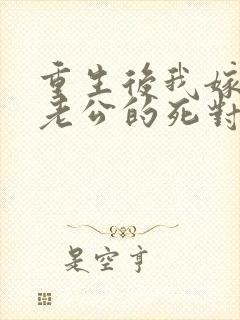 重生後我嫁
老公的死對
是空亨